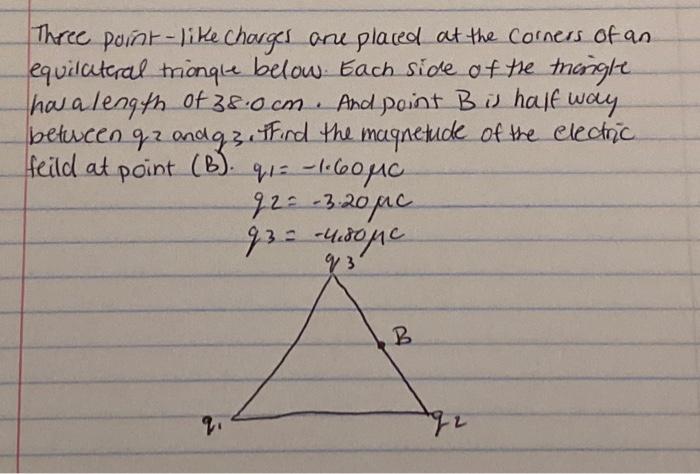 Three point-like charges are placed at the corners of an
equilateral triangle below. Each side of the triangle
has a length of 38.0 cm. And point B is half way
between q2 and q3. Find the magnetude of the electric
feild at point (B). q1 = -1.60 μC
q2 = -3.20 μC
q3 = -4.80 μC
q3
B
q1
q2